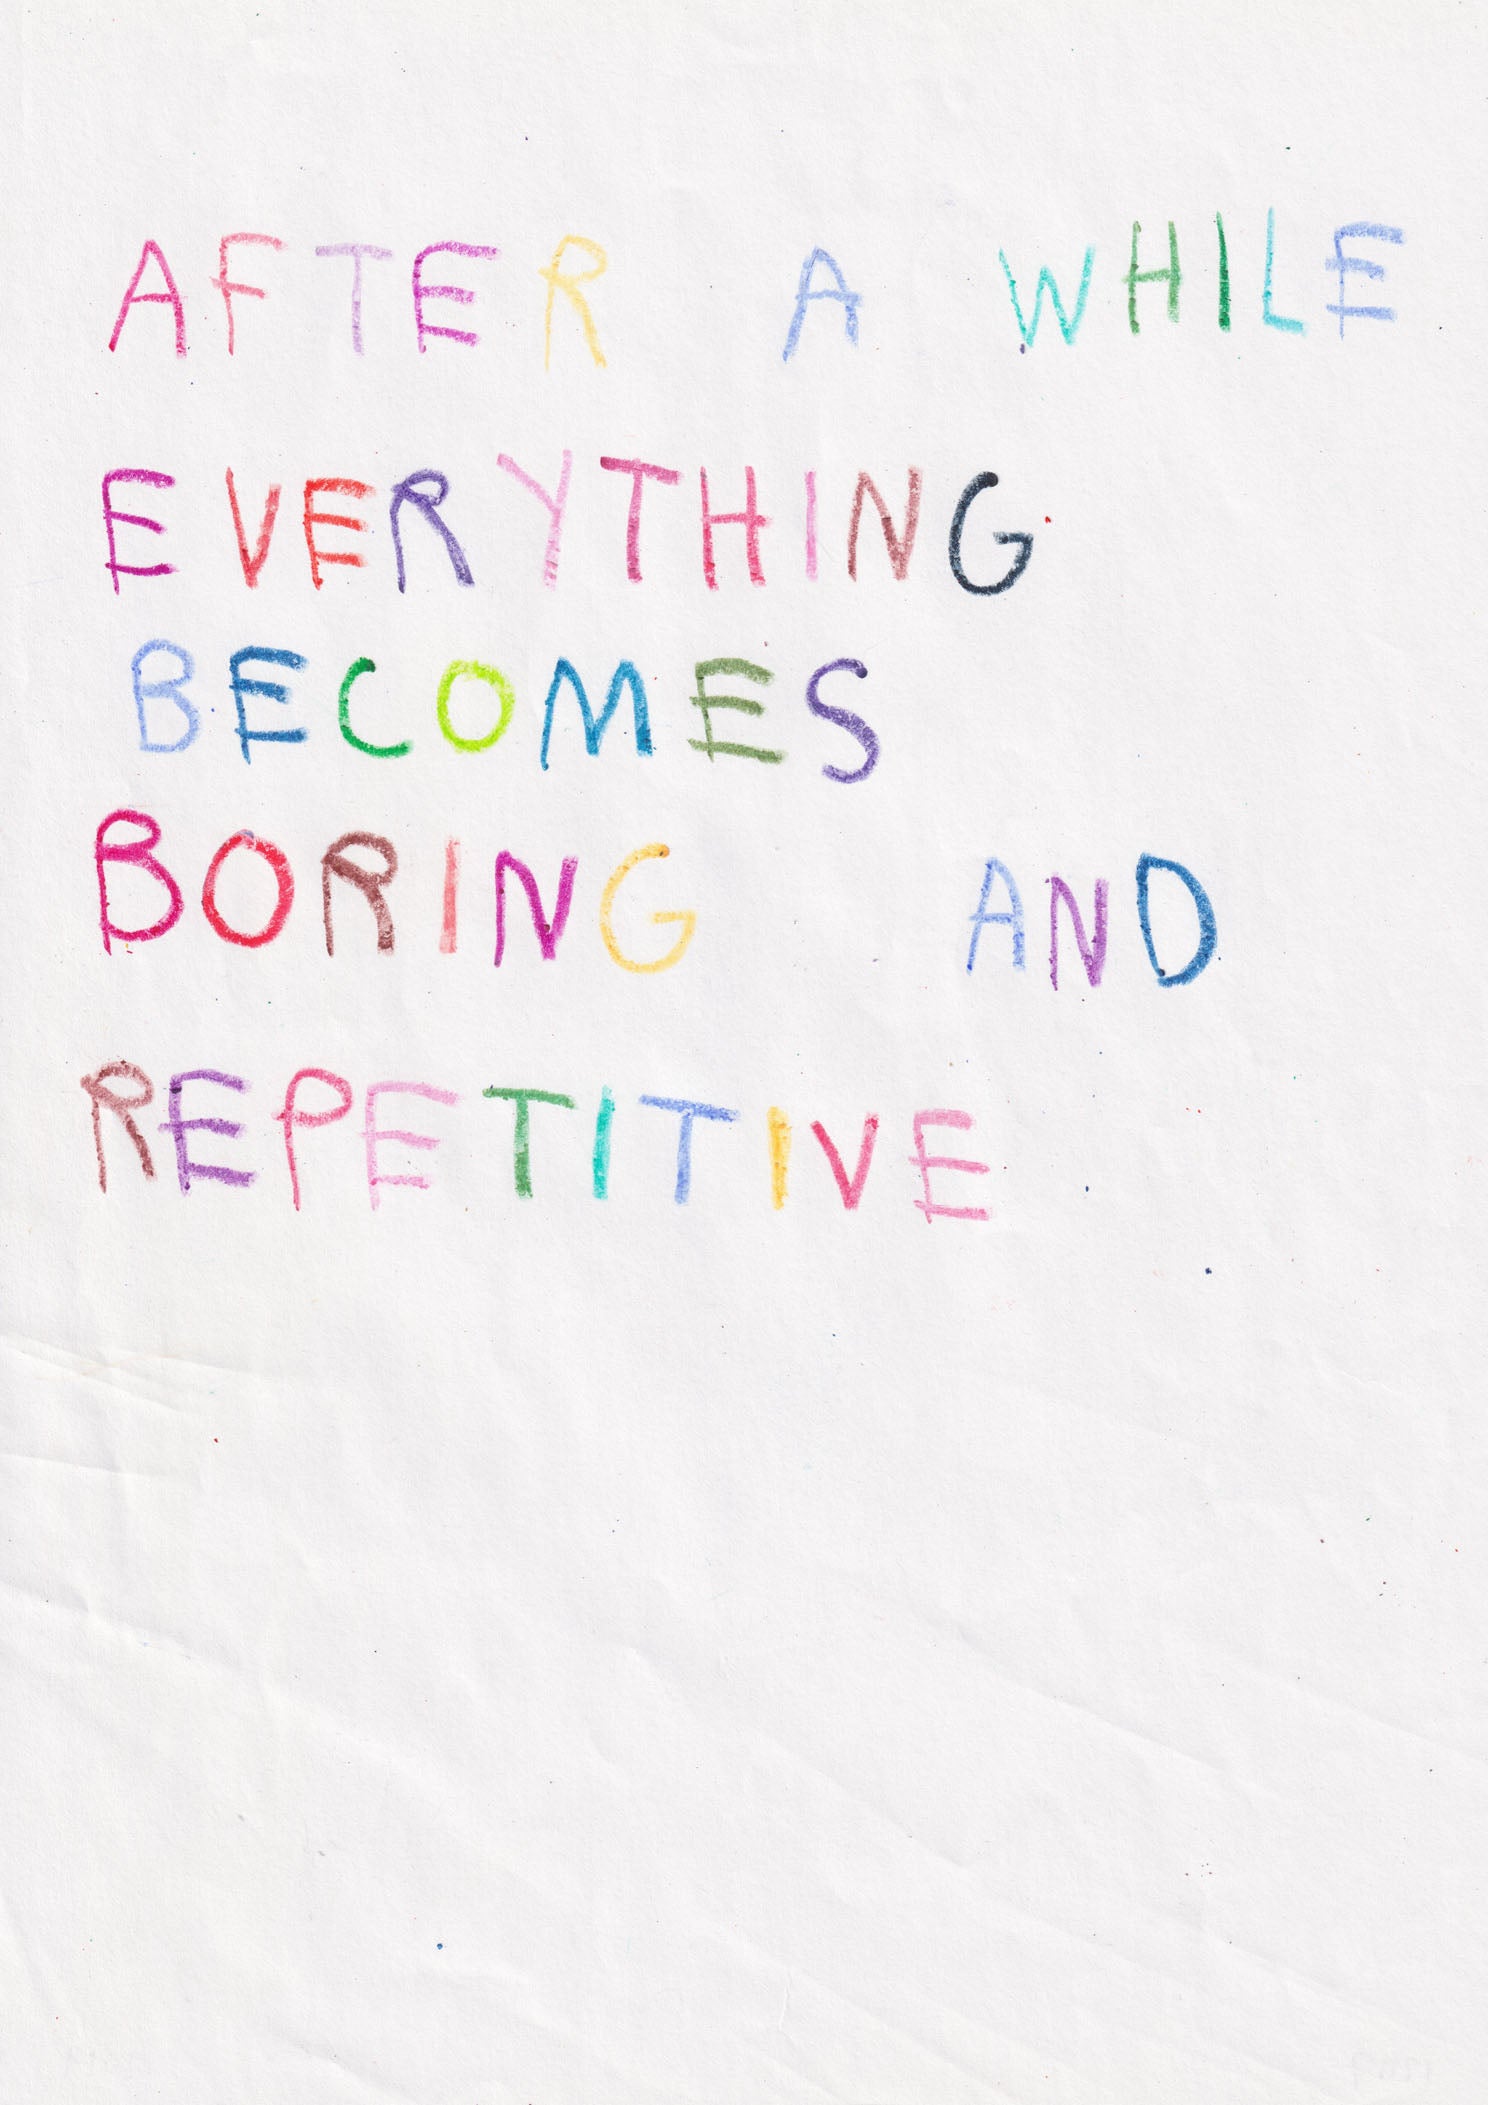 AFTER A WHILE
EVERYTHING
BECOMES
BORING AND
REPETITIVE